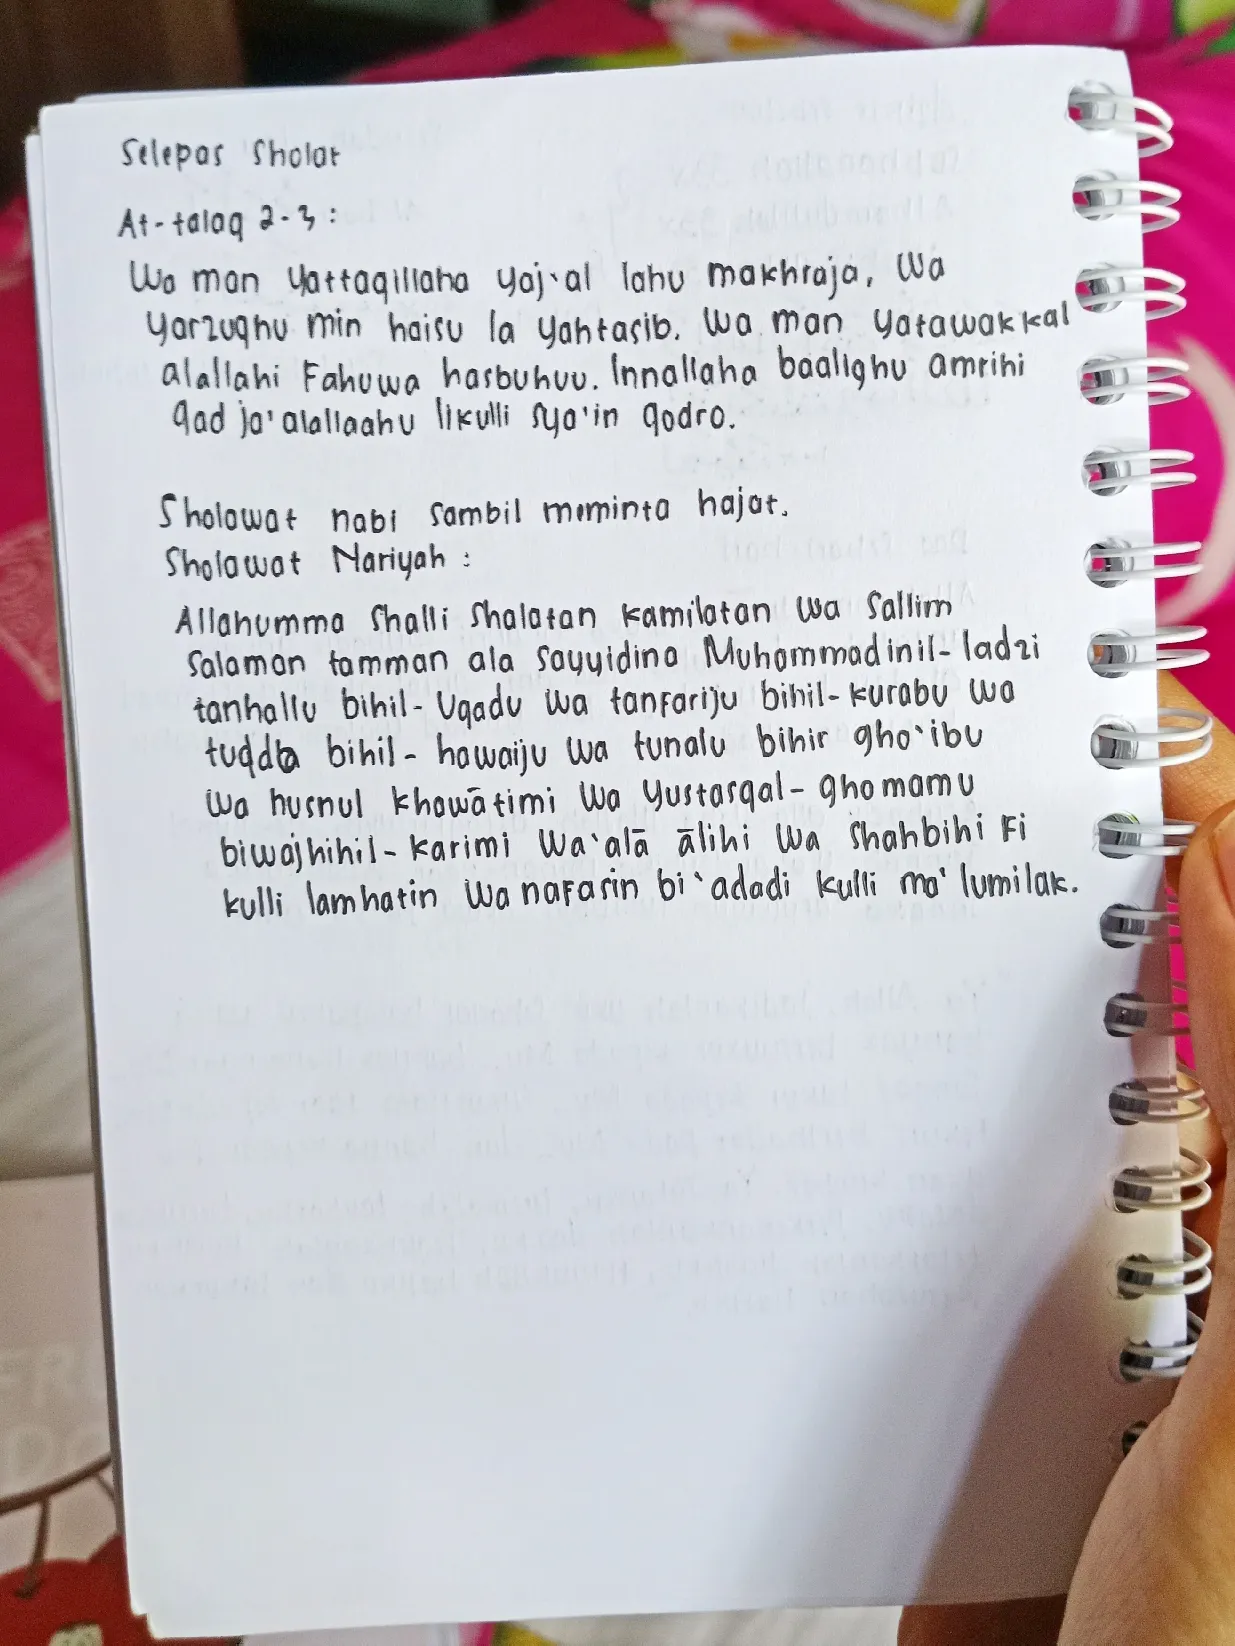 Selepas Sholat
At-talaq 2-3 :
Wa man Yattaqillaha yaj`al lahu makhraja, wa
yarzuqhu min haisu la yahtasib. Wa man yatawakkal
alallahi Fahuwa hasbuhuu. Innallaha baalighu amrihi
qad ja'alallaahu likulli sya'in qodro.
Sholawat nabi sambil meminta hajat.
Sholawat Nariyah :
Allahumma Shalli Shalatan kamilatan wa Sallim
Salaman tamman ala Sayyidina Muhammadinil-ladzi
tanhallu bihil-Uqadu wa tanfariju bihil-kurabu wa
tuqdha bihil-hawaiju wa tunalu bihir gho`ibu
wa husnul khawātimi wa yustasqal-ghomamu
biwajhihil-karimi wa`alā ālihi wa Shahbihi Fi
kulli lamhatin wa nafasin bi`adadi kulli ma'lumilak.